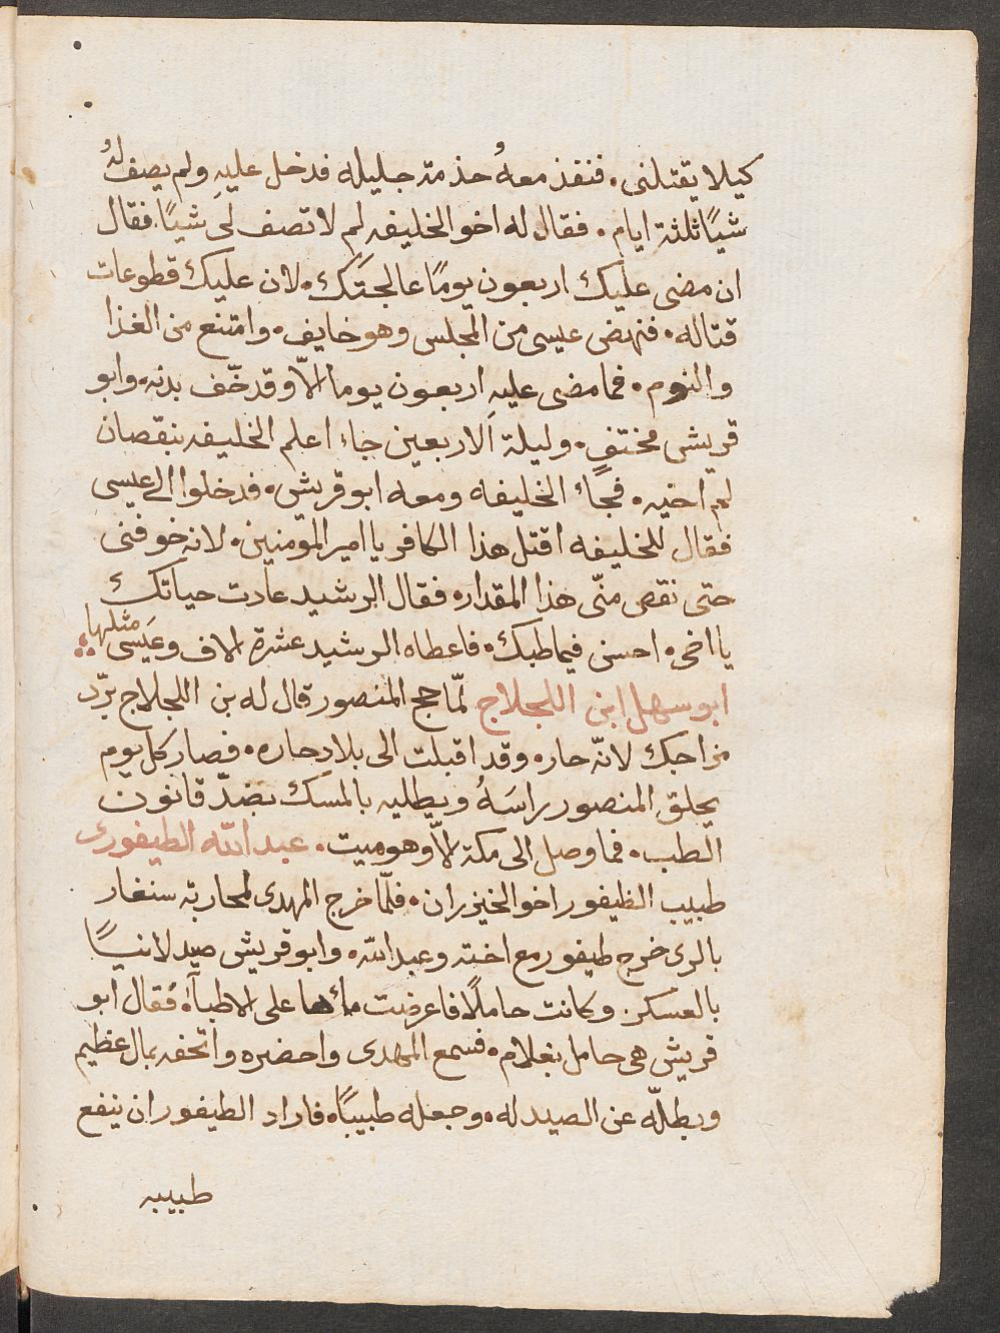 كيلا يقتلنى. فنفذ معهُ خذمة جليله فدخل عليهِ ولم يصف لهُ
شيًا ثلثة ايام. فقال له اخو الخليفه لم لا تصف لى شيًا. فقال
ان مضى عليك اربعون يومًا عالجتك. لان عليك قطوعات
قتاله. فنهض عيسى من المجلس وهو خايف. وامتنع من الغذا
والنوم. فما مضى عليهِ اربعون يوما الاّ وقد خّف بدنه. وابو
قريش مختفٍ. وليلة الاربعين جاء اعلم الخليفه بنقصان
لحم اخيه. فجاء الخليفه ومعه ابو قريش. فدخلوا الى عيسى
فقال للخليفه اقتل هذا الكافر يا امير المومنين. لانه خوفنى
حتى نقص منّى هذا المقدار. فقال الرشيد عادت حياتك
يا اخى. احسن فيما طبك. فاعطاه الرشيد عشرة الاف وعيسى مثلها
ابو سهل ابن اللجلاج لمّا حج المنصور قال له بن اللجلاج برّد
مزاجك لانّه حار. وقد اقبلت الى بلاد حاره. فصار كل يوم
يحلق المنصور راسَهُ ويطليه بالمسك بضدّ قانون
الطب. فما وصل الى مكة الاّ وهو ميت. عبد الله الطيفورى
طبيب الظيفور اخو الخيزران. فلمّا خرج المهدى لمحاربة سنفار
بالرى خرج طيفور مع اخته وعبد الله. وابو قريش صيدلانيًا
بالعسكر. وكانت حاملًا فاعرضت مائها على الاطبآء. فقال ابو
قريش هى حامل بغلام. فسمع المهدى واحضره واتحفه بمال عظيم
وبطلّه عن الصيدله. وجعله طبيبًا. فاراد الطيفور ان ينفع
طبيبه